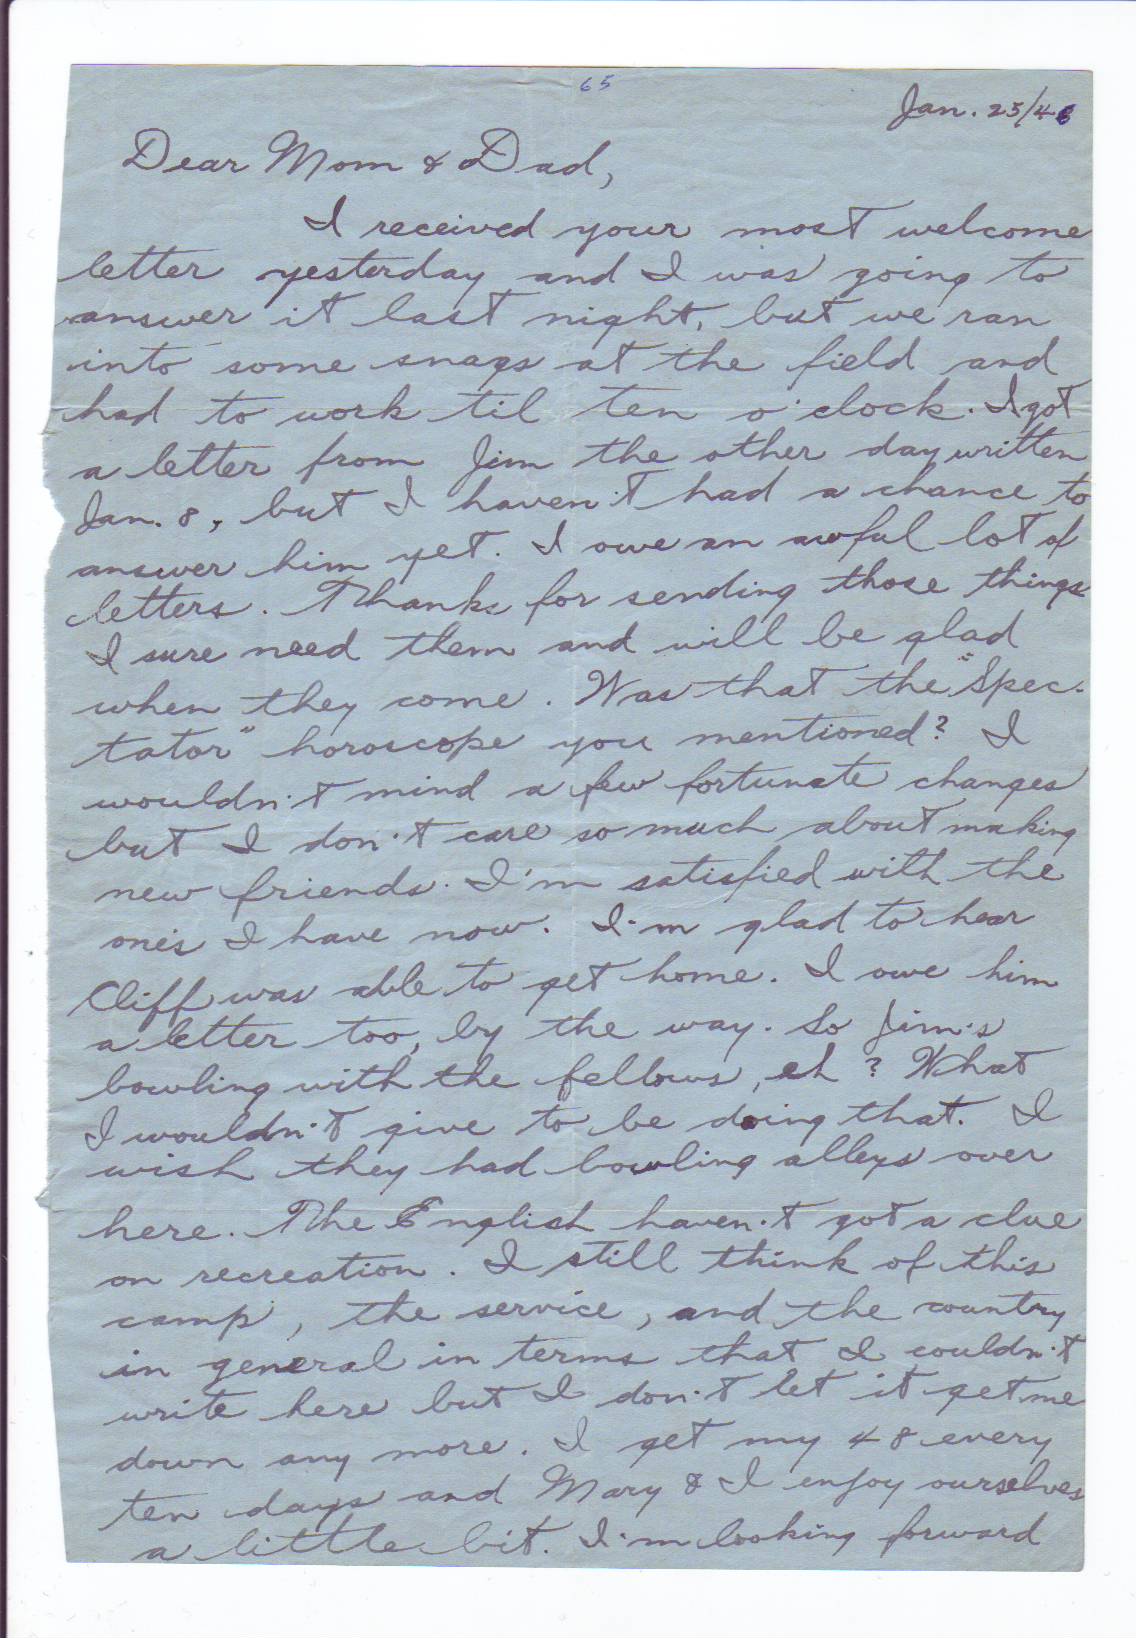 65
Jan. 25/46
Dear Mom & Dad,
I received your most welcome
letter yesterday and I was going to
answer it last night, but we ran
into some snags at the field and
had to work til ten o'clock. I got
a letter from Jim the other day written
Jan. 8, but I haven't had a chance to
answer him yet. I owe an awful lot of
letters. Thanks for sending those things.
I sure need them and will be glad
when they come. Was that the "Spec-
tator" horoscope you mentioned? I
wouldn't mind a few fortunate changes
but I don't care so much about making
new friends. I'm satisfied with the
one's I have now. I'm glad to hear
Cliff was able to get home. I owe him
a letter too, by the way. So Jim's
bowling with the fellows, eh? What
I wouldn't give to be doing that. I
wish they had bowling alleys over
here. The English haven't got a clue
on recreation. I still think of this
camp, the service, and the country
in general in terms that I couldn't
write here but I don't let it get me
down any more. I get my 48 every
ten days and Mary & I enjoy ourselves
a little bit. I'm looking forward